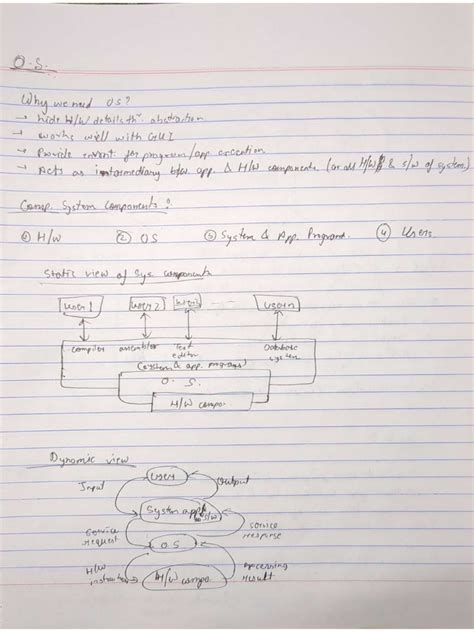 O.S.
Why we need OS?
→ hide H/W details thr abstraction
→ works well with GUI
→ Provide envnt for program/app execution
→ Acts as intermediary b/w app. & H/W components (or all H/W & S/W of system)
Comp. System Components:
① H/W ② OS ③ System & App. Programs. ④ Users.
Static view of Sys. components
user 1 user 2 user n
compiler assembler Text editor Database system
(system & app. programs)
O. S.
H/W compo.
Dynamic view
user
Input Output
System app/
S/W
Service request service response
OS
H/W Processing result
H/W compo.